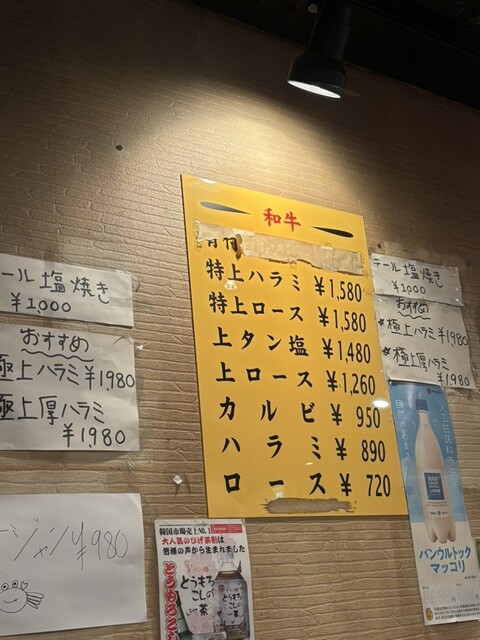 和牛
特上ハラミ ¥1,580
特上ロース ¥1,580
上タン塩 ¥1,480
上ロース ¥1,260
カルビ ¥ 950
ハラミ ¥ 890
ロース ¥ 720
ール塩焼き
¥1,000
おすすめ
極上ハラミ ¥1,980
極上厚ハラミ
¥1,980
ジャン ¥980
テール塩焼き
¥1,000
おすすめ
極上ハラミ ¥1,980
極上厚ハラミ
¥1,980
韓国市場売上No.1
大人気のひげ茶割は
皆様の声から生まれました
とうもろこしの
一茶
人工甘味料
バンウルトック
マッコリ